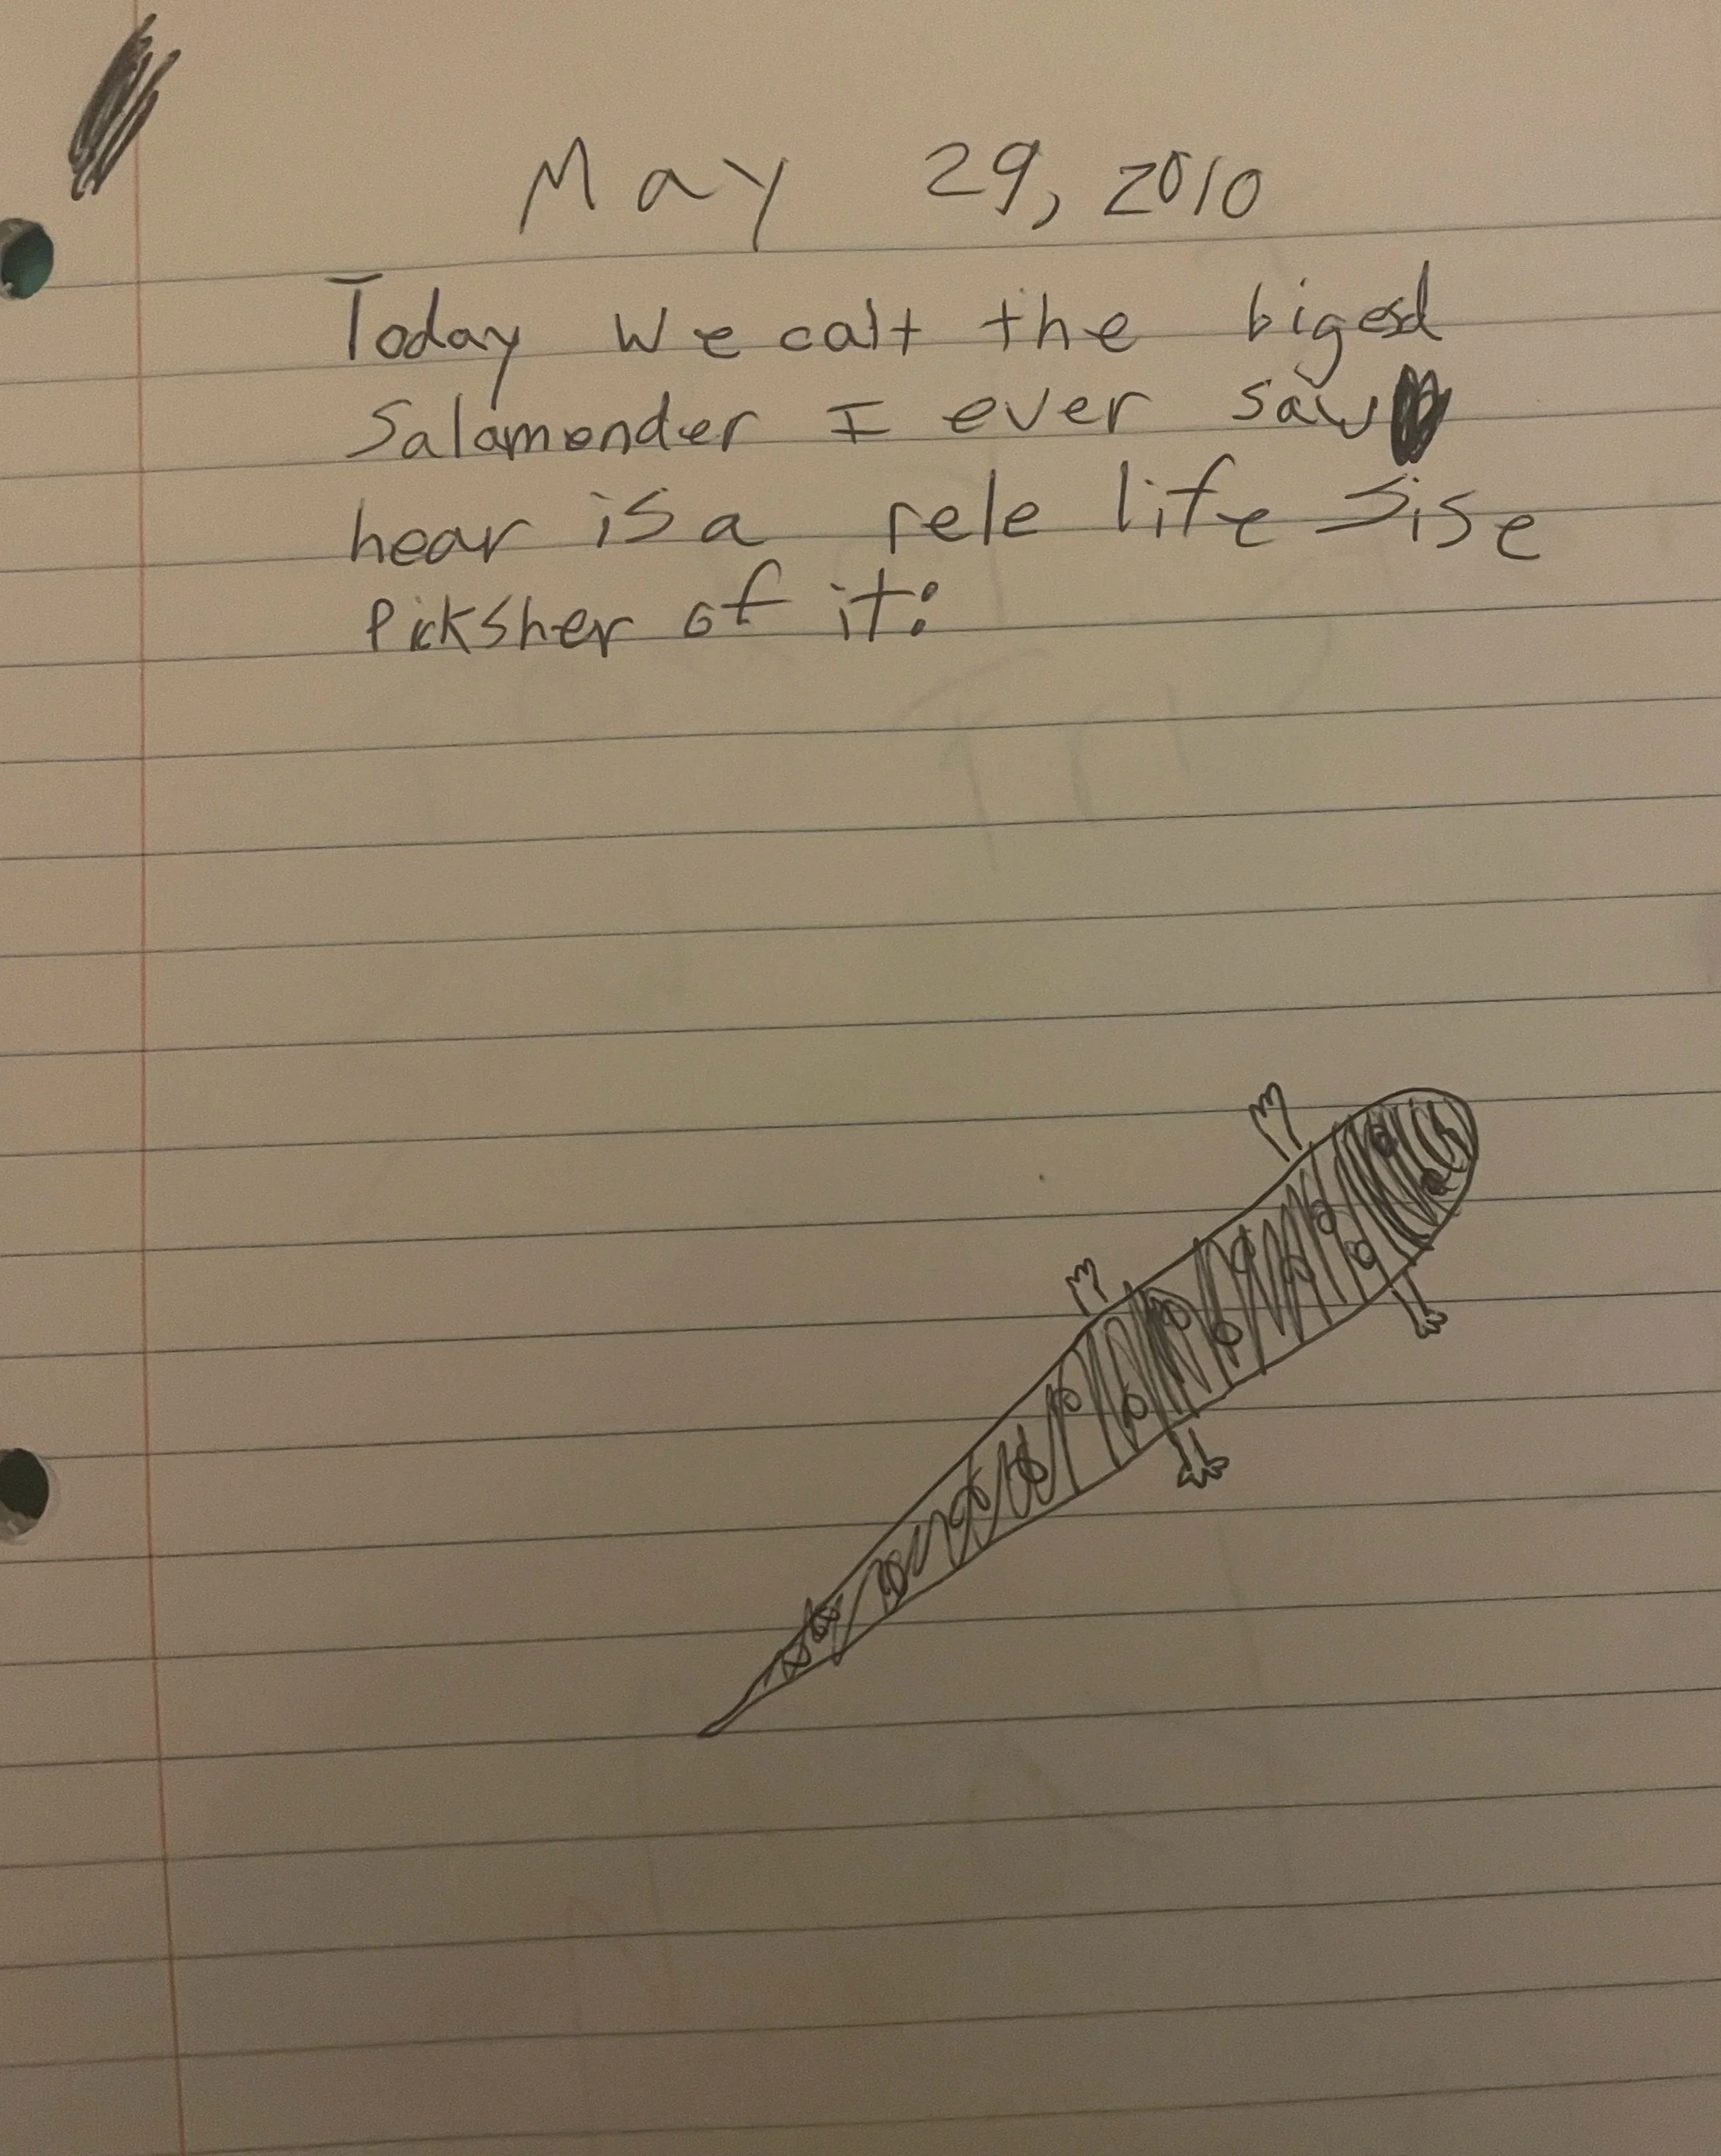 May 29, 2010
Today we calt the bigesd
Salamander I ever saw
hear is a rele life sise
Picksher of it: